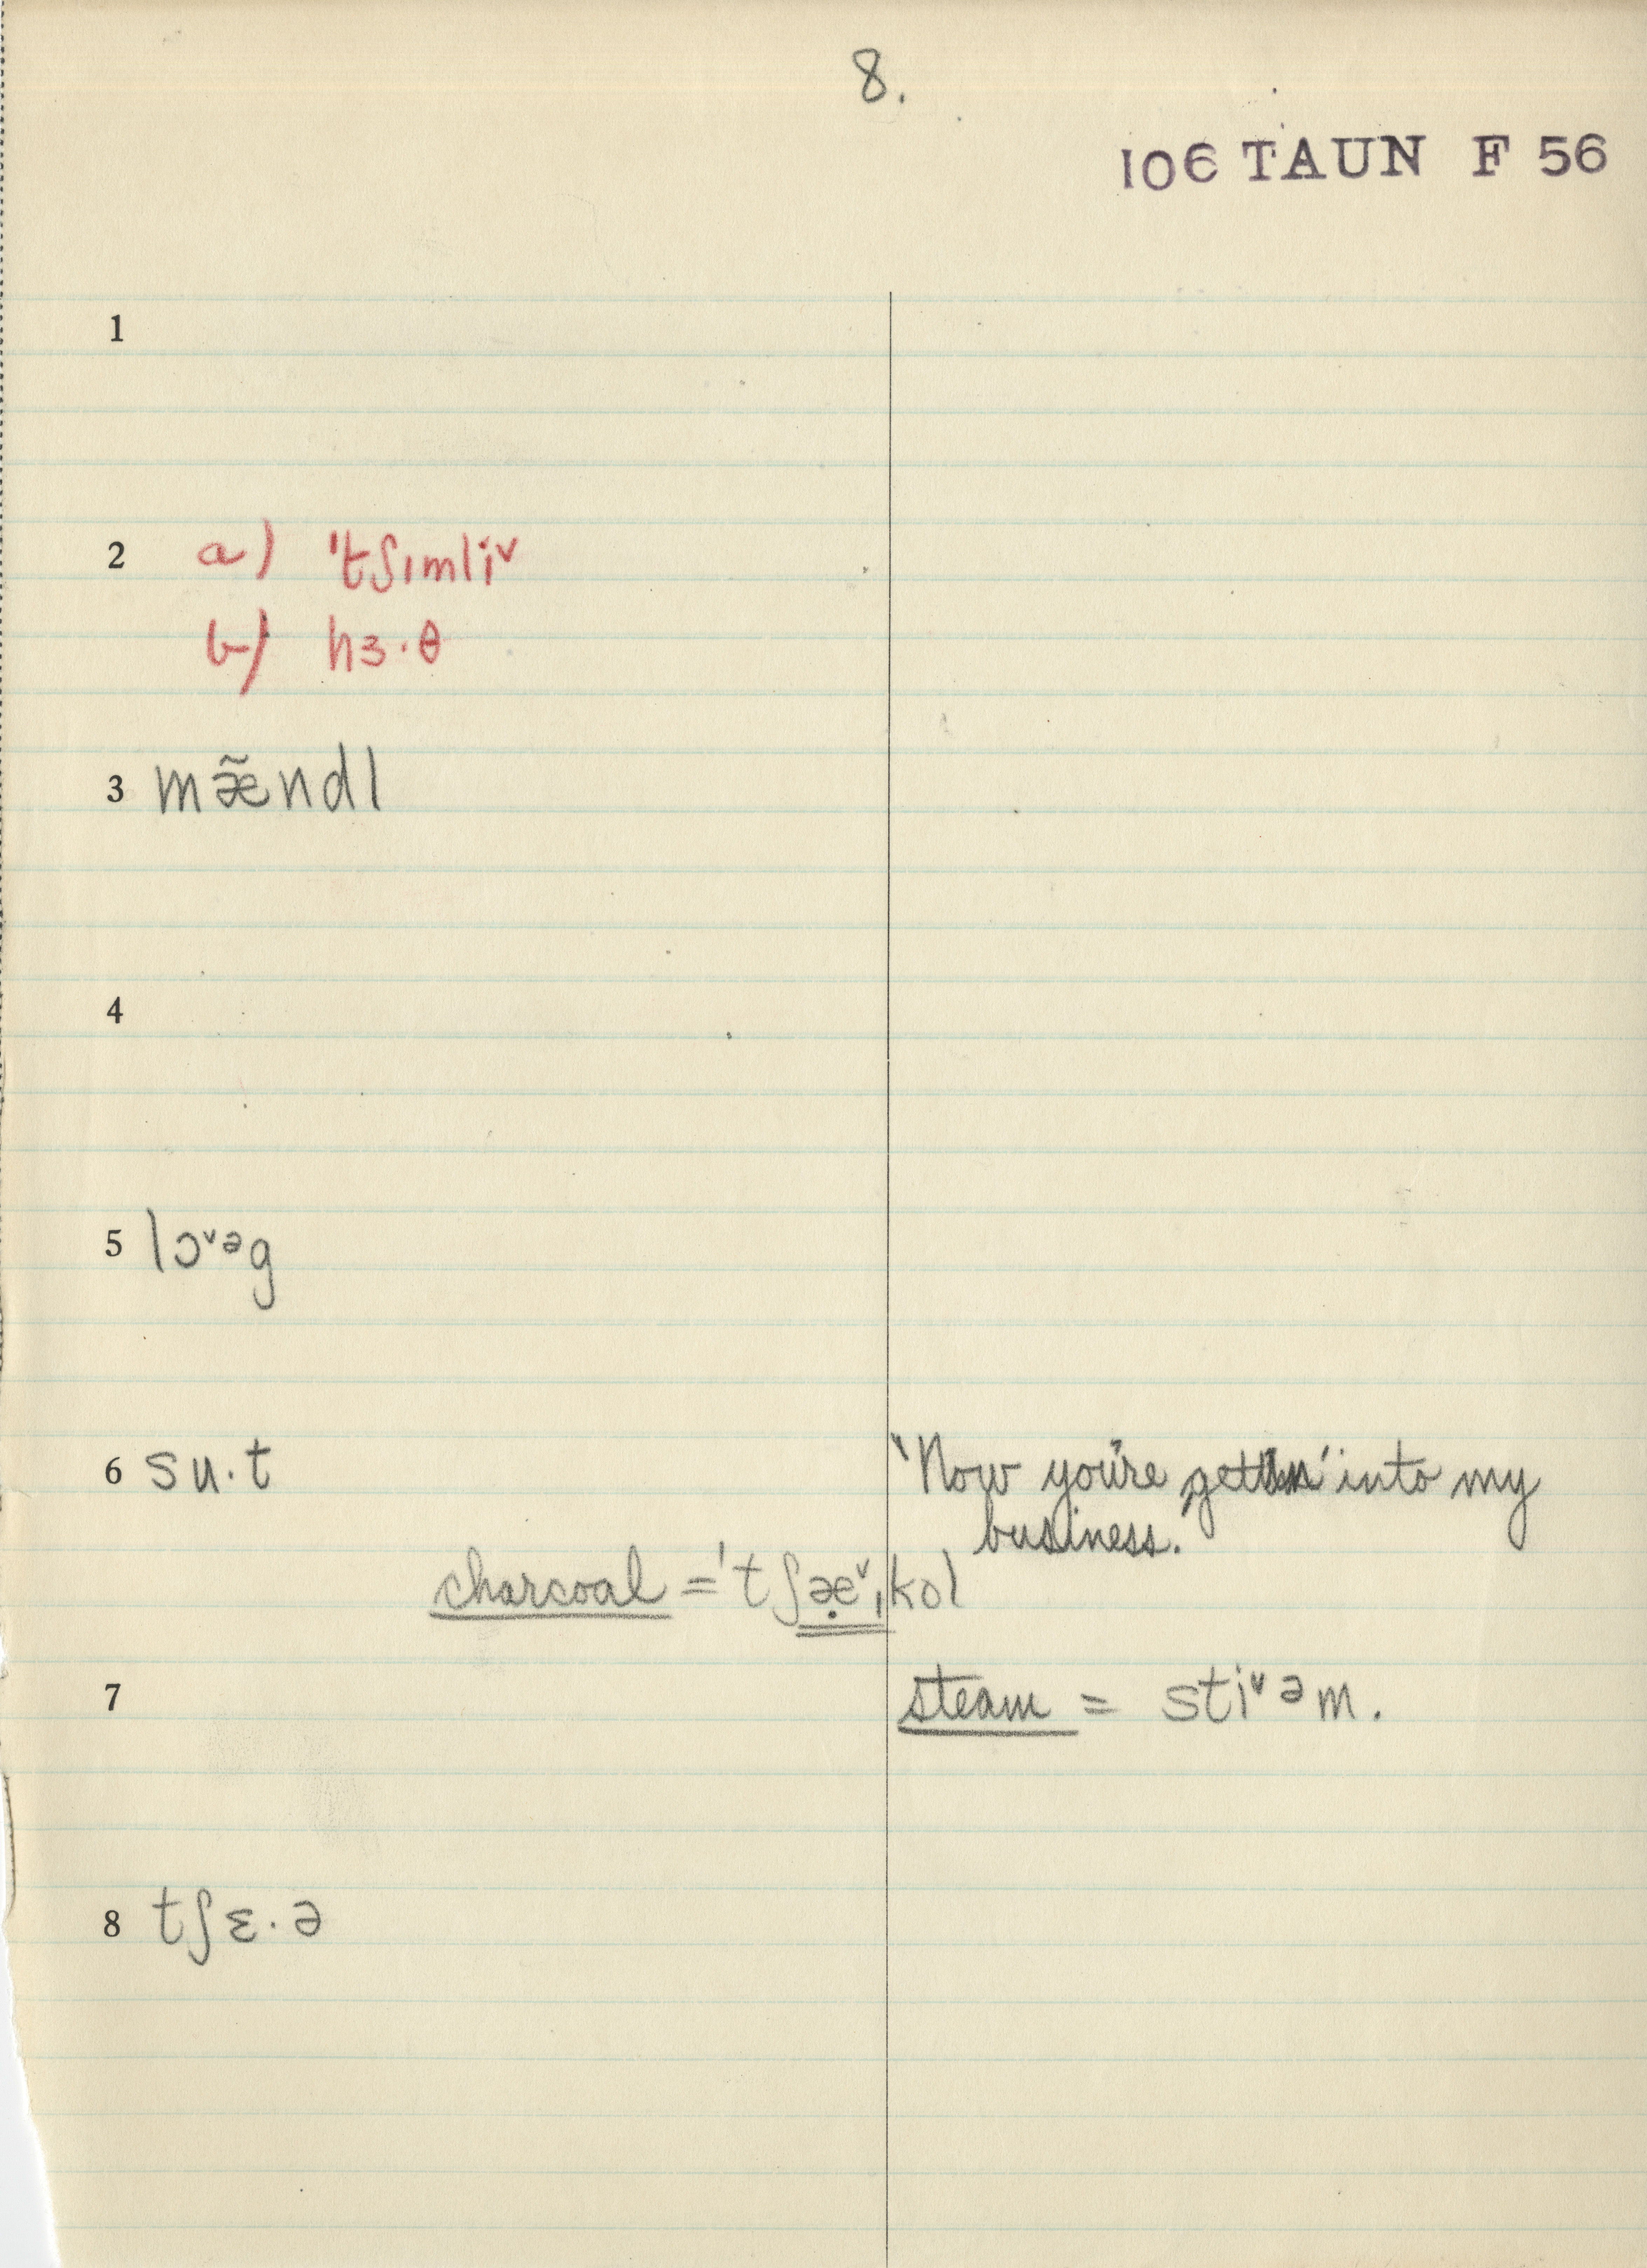 8.
106 TAUN F 56
1
2 a) 'tʃɪmliᵛ
b) hɜ·θ
3 mæ̃ndl
4
5 lɔᵛᵊg
6 su·t
'Now you're gettin' into my
business.'
charcoal = 'tʃæ̣ᵛˌkol
7 steam = stiᵛəm.
8 tʃɛ·ə